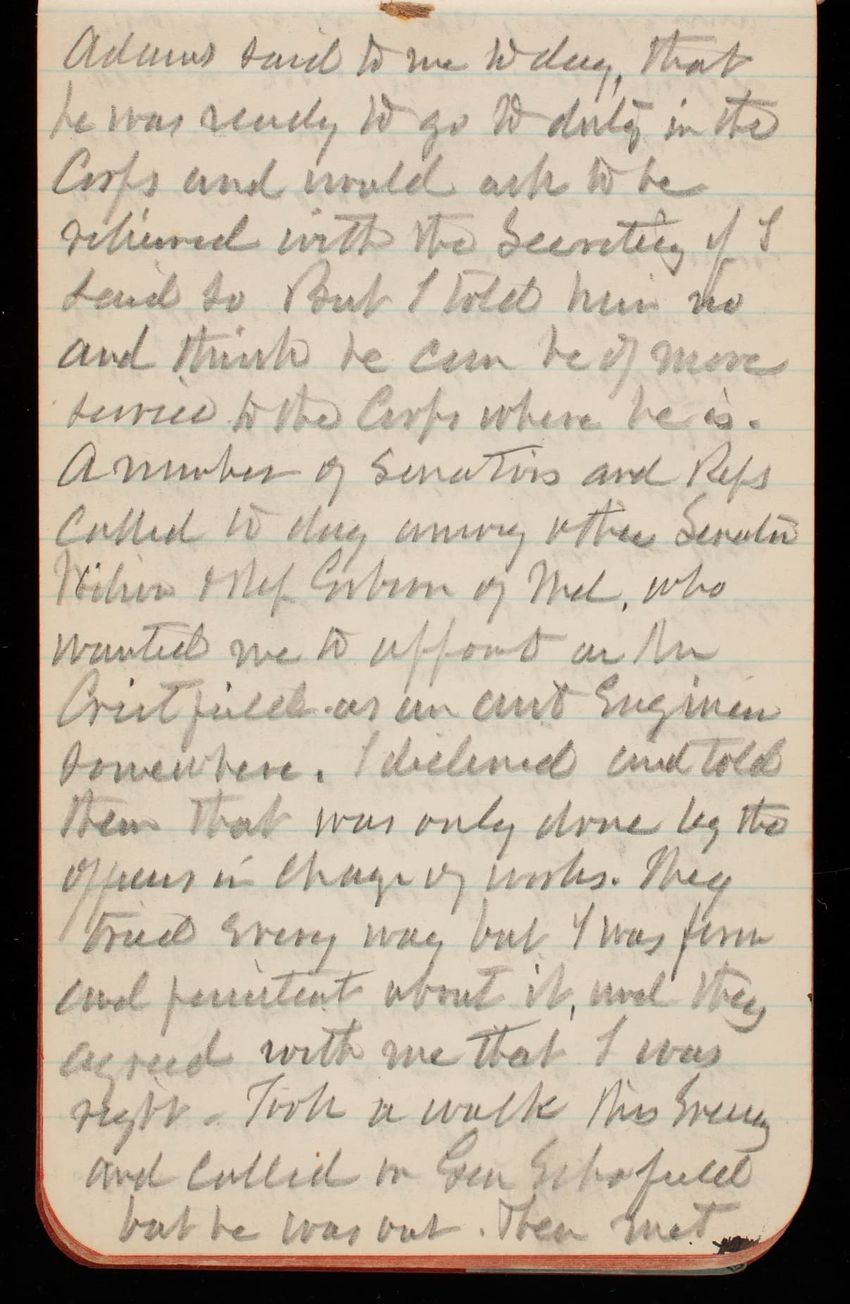 Adams said to me today, that
he was ready to go to duty in the
Corps and would ask to be
relieved with the Secretary if I
said so But I told him no
and think he can be of more
service to the Corps where he is.
A number of Senators and Reps
called to day among other Senator
Wilson & Rep Gibson of Md. who
wanted me to appoint a Mr
Crisfield as an asst Engineer
somewhere. I declined and told
them that was only done by the
officers in charge of works. They
tried every way but I was firm
and persistent about it, and they
agreed with me that I was
right - Took a walk this Evening
and called on Gen Schofield
but he was out. Then met